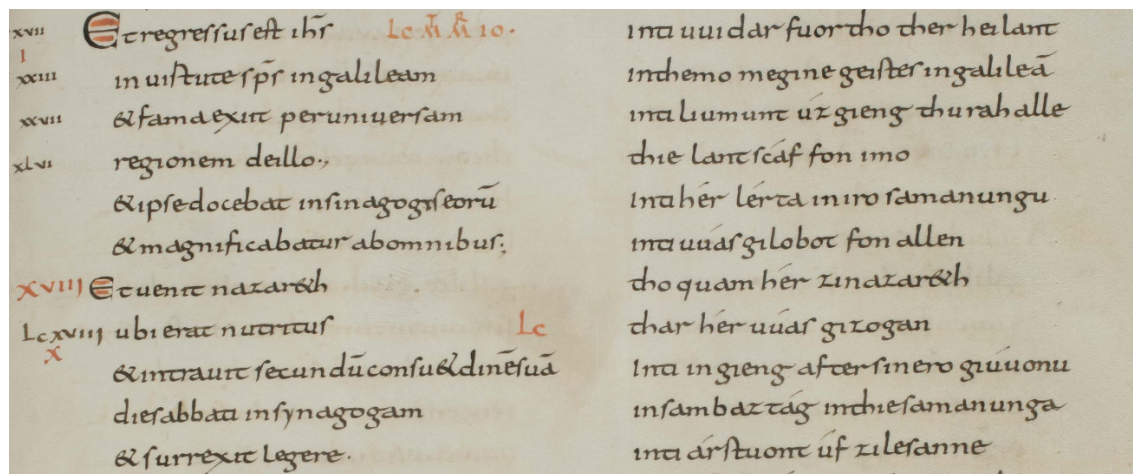 xvii Et regressus est ihs̄ Lc M̄ M̄R 10.
I
xxiii in uirtute sp̄s in galileam
xxvii & fama exiit per uniuersam
xlvi regionem de illo.,
& ipse docebat in sinagogis eorū
& magnificabatur ab omnibus;
XVIII Et uenit nazar&h
Lc xviii ubi erat nutritus Lc
X
& intrauit secundū consu&dinē suā
die sabbati in synagogam
& surrexit legere.
inti uuidar fuor tho ther heilant
in themo megine geistes in galileā
inti liumunt úz gieng thurah alle
thie lantscáf fon imo
inti hér lérta in iro samanungu
inti uuás gilobot fon allen
tho quam hér zi nazar&h
thar hér uuás gizogan
Inti in gieng after sinero giuuonu
in sambaztág in thie samanunga
inti árstuont úf zi lesanne